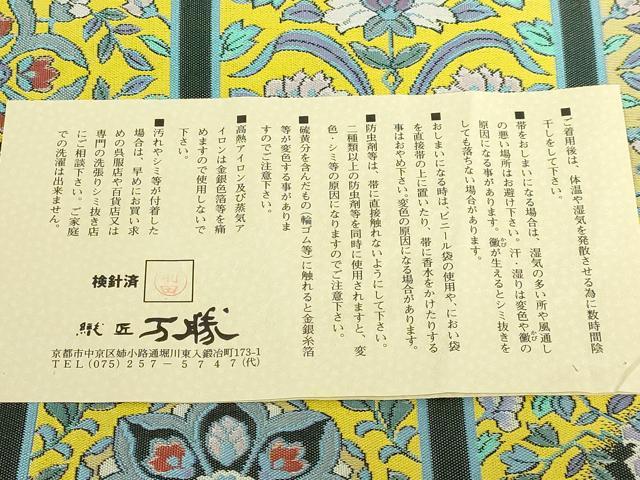 ■ご着用後は、体温や湿気を発散させる為に数時間陰
干しをして下さい。
■帯をおしまいになる場合は、湿気の多い所や風通し
の悪い場所はお避け下さい。汗・湿りは変色や黴の
原因になる事があります。黴が生えるとシミ抜きを
しても落ちない場合があります。
■おしまいになる時は、ビニール袋の使用や、におい袋
を直接帯の上に置いたり、帯に香水をかけたりする
事はおやめ下さい。変色の原因になる場合があります。
■防虫剤等は、帯に直接触れないようにして下さい。
二種類以上の防虫剤等を同時に使用されますと、変
色・シミ等の原因になりますのでご注意下さい。
■硫黄分を含んだもの（輪ゴム等）に触れると金銀糸箔
等が変色する事がありま
すのでご注意下さい。
■高熱アイロン及び蒸気ア
イロンは金銀色箔等を痛
めますので使用しないで
下さい。
■汚れやシミ等が付着した
場合は、早めにお買い求
めの呉服店や百貨店又は
専門の洗張りシミ抜き店
にご相談下さい。ご家庭
での洗濯は出来ません。
検針済
織匠万勝
京都市中京区姉小路通堀川東入鍛冶町173-1
TEL(075)257-5747(代)